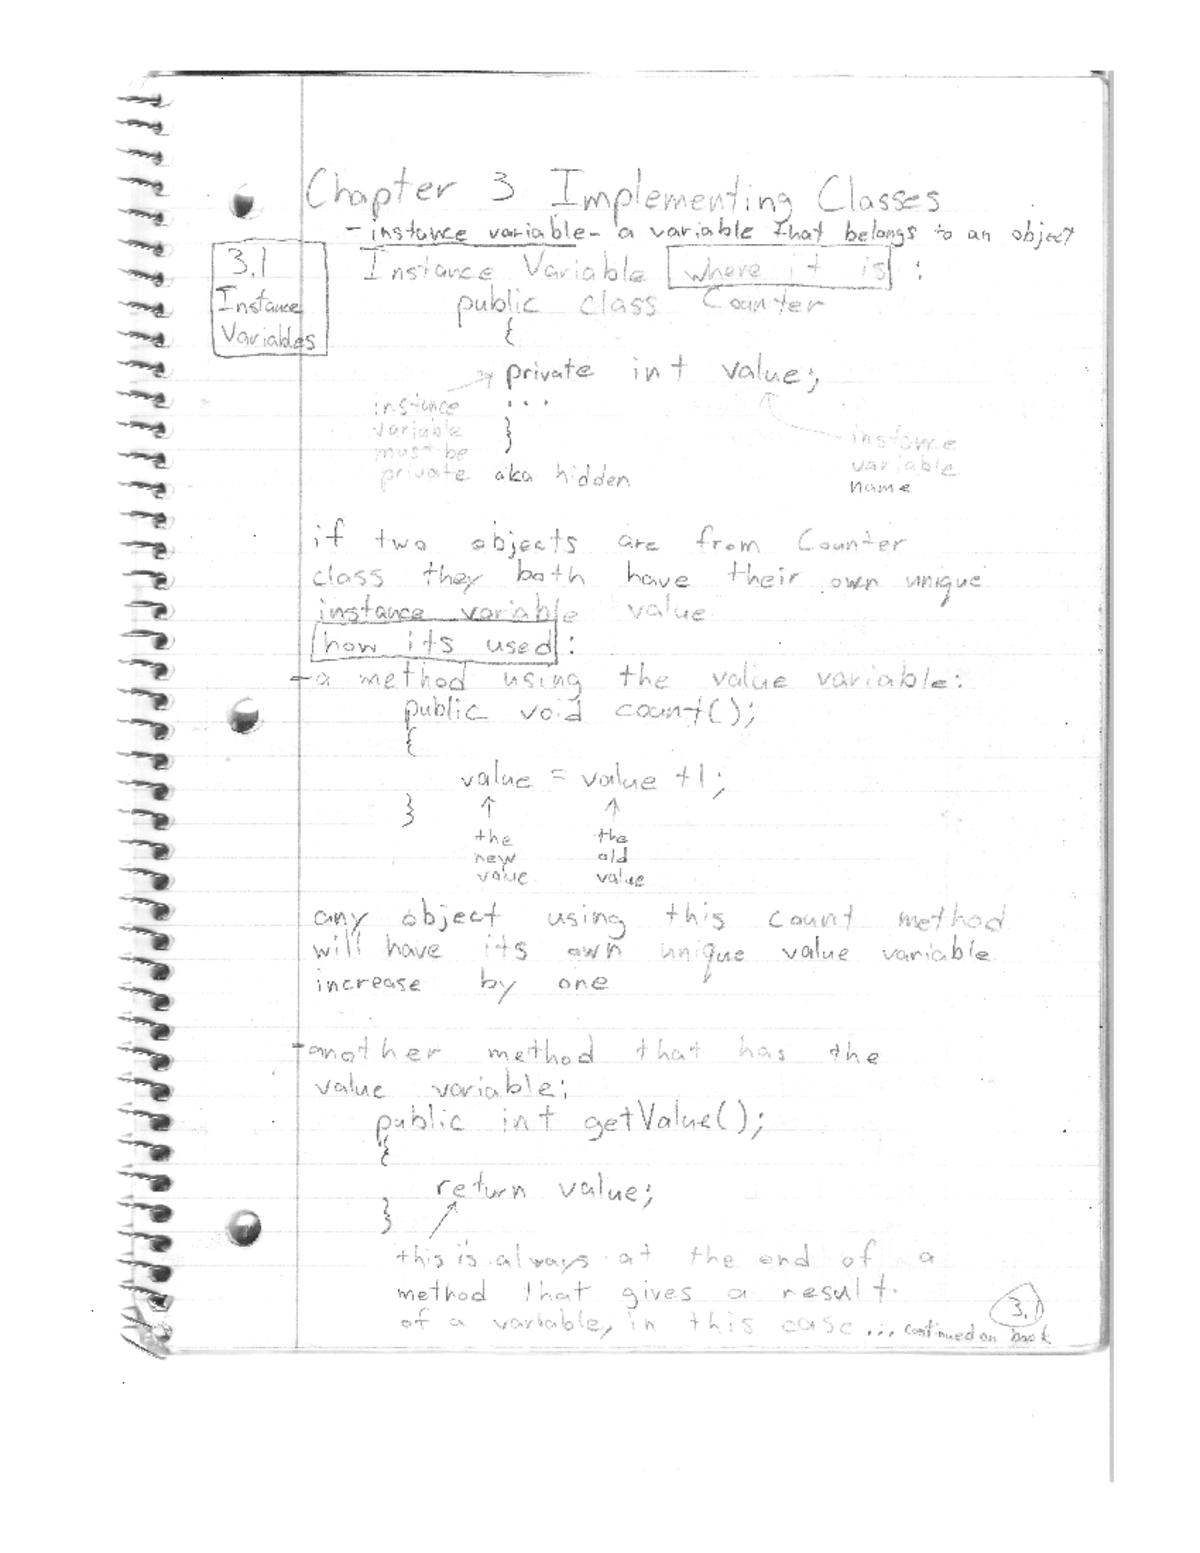 Chapter 3 Implementing Classes
- instance variable - a variable that belongs to an object
3.1
Instance
Variables
Instance Variable where it is :
public class Counter
{
private int value;
...
}
instance
variable
must be
private aka hidden
instance
variable
name
if two objects are from Counter
class they both have their own unique
instance variable value
how its used :
- a method using the value variable:
public void count();
{
value = value +1;
}
the
new
value
the
old
value
any object using this count method
will have its own unique value variable
increase by one
- another method that has the
value variable:
public int getValue();
{
return value;
}
this is always at the end of a
method that gives a result
of a variable, in this case ... continued on back
3.1